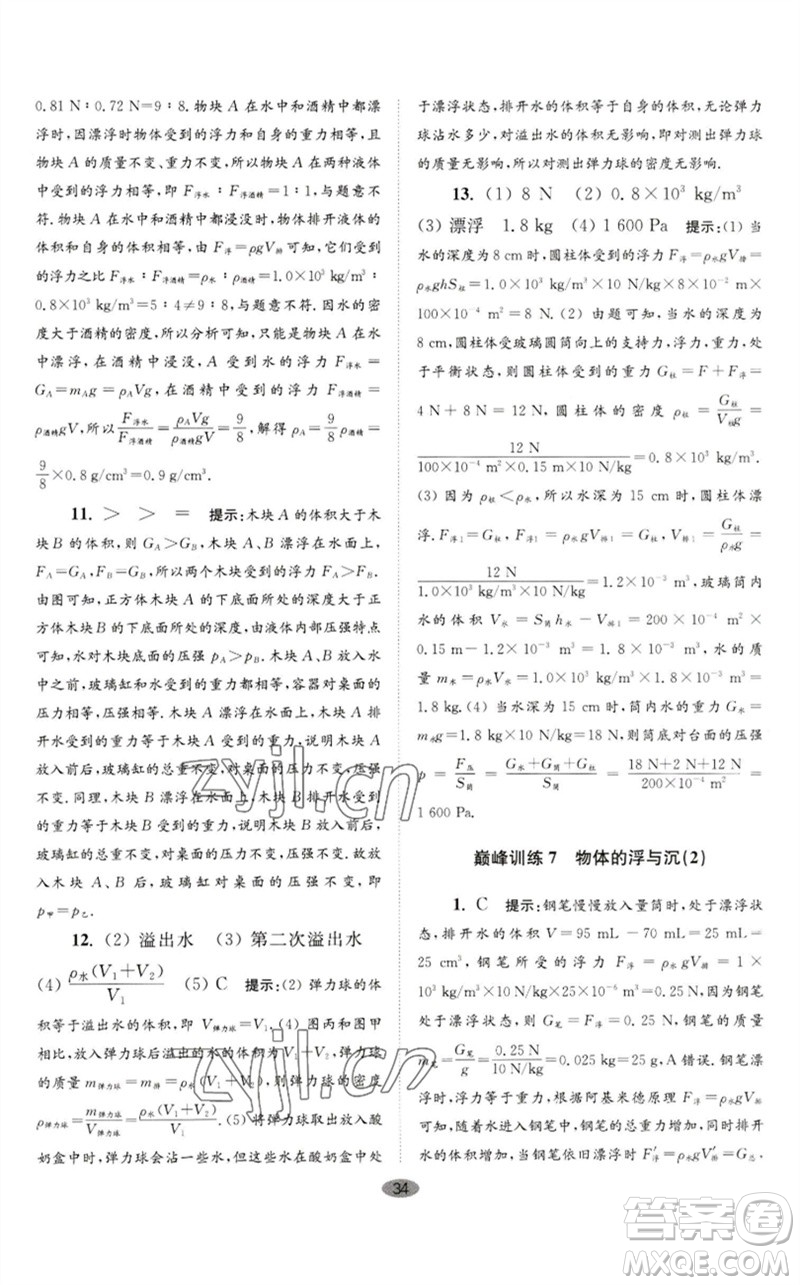 0.81 N∶0.72 N=9∶8. 物块 A 在水中和酒精中都漂
浮时,因漂浮时物体受到的浮力和自身的重力相等,且
物块 A 的质量不变、重力不变,所以物块 A 在两种液体
中受到的浮力相等,即 F浮水∶F浮酒精=1∶1,与题意不
符. 物块 A 在水中和酒精中都浸没时,物块排开液体的
体积和自身的体积相等,由 F浮=ρgV排 可知,它们受到
的浮力之比 F浮水∶F浮酒精=ρ水∶ρ酒精=1.0×10³ kg/m³∶
0.8×10³ kg/m³=5∶4≠9∶8,与题意不符. 因水的密
度大于酒精的密度,所以分析可知,只能是物块 A 在水
中漂浮,在酒精中浸没,A 受到水的浮力 F浮水=
G_A=m_A g=ρ_A Vg,在酒精中受到的浮力 F浮酒精=
ρ酒精gV,所以 F浮水/F浮酒精=ρ_A Vg/ρ酒精gV=9/8,解得 ρ_A=9/8 ρ酒精=
9/8×0.8 g/cm³=0.9 g/cm³.
11. > > = 提示:木块 A 的体积大于木
块 B 的体积,则 G_A>G_B,木块 A、B 漂浮在水面上,
F_A=G_A,F_B=G_B,所以两个木块受到的浮力 F_A>F_B.
由图可知,正方体木块 A 的下底面所处的深度大于正
方体木块 B 的下底面所处的深度,由液体内部压强特点
可知,木块 A、B 下底面的压强 p_A>p_B. 木块 A 放入水
中前,玻璃缸和水受到的总重力都相等,容器对桌面的
压力相等,压强相等. 木块 A 漂浮在水面上,木块 A 排
开水受到的重力等于木块 A 受到的重力,说明木块 A
放入后,玻璃缸的总重不变,对桌面的压力不变,压强不
变. 同理,木块 B 漂浮在水面上,木块 B 排开水受到的
重力等于木块 B 受到的重力,说明木块 B 放入后,玻璃
缸的总重不变,对桌面的压力不变,压强不变. 故放入
木块 A、B 后,玻璃缸对桌面的压力、压强都不变,即
p甲=p乙.
12. (2) 溢出水 (3) 第二次溢出水
(4) ρ水(V₁+V₂)/V₁ (5) C 提示:(2) 弹力球的体
积等于溢出水的体积,即 V弹力球=V₁. (4) 图丙和图甲
相比,放入弹力球后溢出的水的体积为 V₁+V₂,弹力球
的质量 m弹力球=m排=ρ水(V₁+V₂),则弹力球的密度
ρ弹力球=m弹力球/V弹力球=ρ水(V₁+V₂)/V₁. (5) 将弹力球取出放入酸
奶盒中时,弹力球会沾一些水,但这些水在酸奶盒中处
于漂浮状态,排开水的体积等于自身的体积,无论弹力
球沾水多少,对溢出水无影响,即对测出弹力球的密度无影响.
13. (1) 8 N (2) 0.8×10³ kg/m³
(3) 漂浮 1.8 kg (4) 1 600 Pa 提示:(1) 当
水的深度为 8 cm 时,圆柱体受的浮力 F浮=ρ水gV排=
ρ水ghS柱=1.0×10³ kg/m³×10 N/kg×8×10⁻² m×
100×10⁻⁴ m²=8 N. (2) 由题可知,当水的深度为
8 cm,圆柱体受玻璃圆筒向上的支持力,浮力,重力,处
于平衡状态,则圆柱体受的重力 G柱=F+F浮=
4 N+8 N=12 N,圆柱体的密度 ρ柱=G柱/V柱g=
12 N/100×10⁻⁴ m²×0.15 m×10 N/kg=0.8×10³ kg/m³.
(3) 因为 ρ柱<ρ水,所以水深为 15 cm 时,圆柱体漂
浮. F浮1=G柱,F浮1=ρ水gV排1=G柱,V排1=G柱/ρ水g=
12 N/1.0×10³ kg/m³×10 N/kg=1.2×10⁻³ m³,玻璃筒内
水的体积 V水=S筒h水-V排1=200×10⁻⁴ m²×
0.15 m-1.2×10⁻³ m³=1.8×10⁻³ m³,水的质
量 m水=ρ水V水=1.0×10³ kg/m³×1.8×10⁻³ m³=
1.8 kg. (4) 当水深为 15 cm 时,筒内水的重力 G水=
m水g=1.8 kg×10 N/kg=18 N,则筒底对台面的压强
p=F压/S筒=G水+G筒+G柱/S筒=18 N+2 N+12 N/200×10⁻⁴ m²=
1 600 Pa.
巅峰训练 7 物体的浮与沉(2)
1. C 提示:钢笔慢慢放入量筒时,处于漂浮
状态,排开水的体积 V=95 mL-70 mL=25 mL=
25 cm³,钢笔所受的浮力 F浮=ρ水gV排=1×
10³ kg/m³×10 N/kg×25×10⁻⁶ m³=0.25 N,因为钢笔
处于漂浮状态,则 G笔=F浮=0.25 N,钢笔的质量
m笔=G笔/g=0.25 N/10 N/kg=0.025 kg=25 g,A 错误. 钢笔漂
浮时,浮力等于重力,根据阿基米德原理 F浮=ρ水gV排
可知,随着水进入钢笔的体积增大,钢笔的总重力增大,
受到的浮力增大,钢笔排开水的体积会增大,同时排开
水的体积增大,钢笔的浮力 F′浮=ρ水gV′排=G总.
34
答案圈
MXQE.COM
zyjl.cn
zyjl.cn